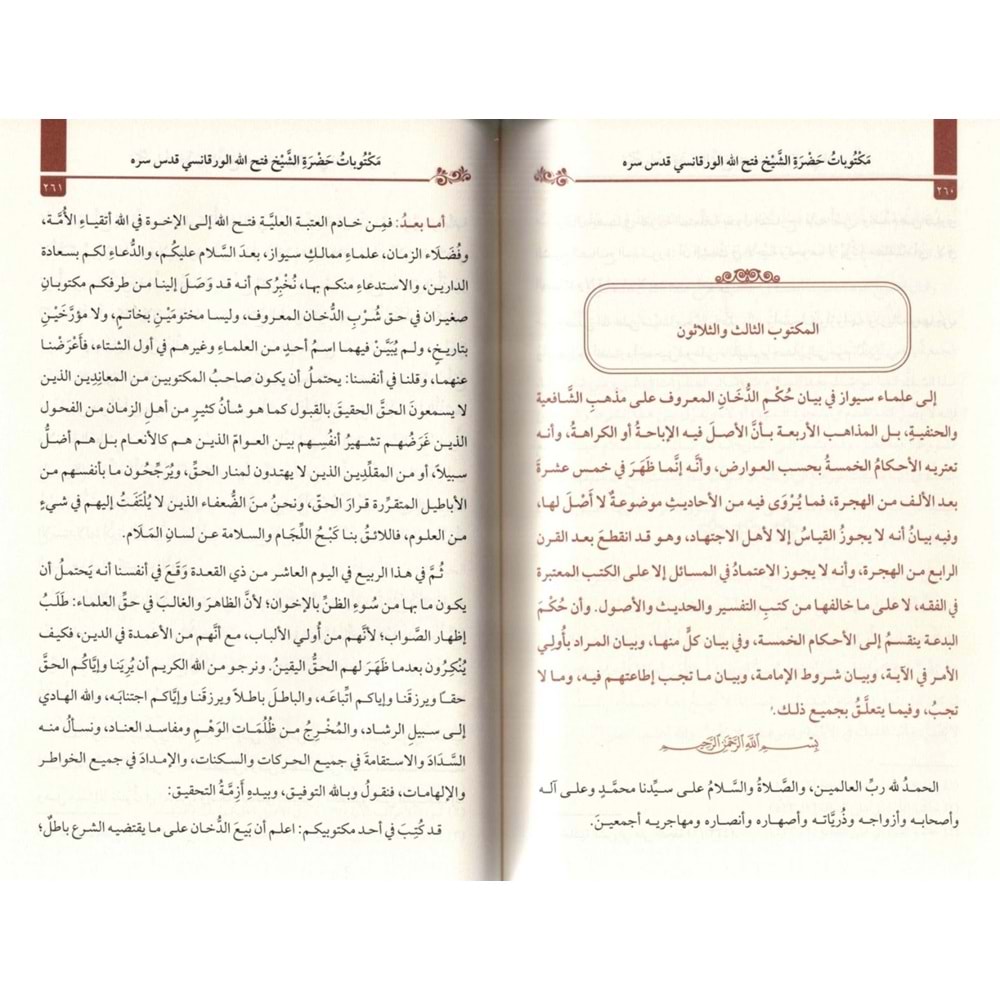 مَكْتُوبَاتُ حَضْرَةِ الشَّيْخ فتح الله الورقانسي قدس سره
٢٦٠
المكتوب الثالث والثلاثون
إلى علماء سيواز في بيان حُكْمِ الدُّخَانِ المعروف على مذهبِ الشَّافعية
والحنفيةِ، بل المذاهب الأربعة بأنَّ الأصلَ فيه الإباحةُ أو الكراهةُ، وأنه
تعتريه الأحكامُ الخمسةُ بحسب العوارض، وأنَّه إنَّما ظَهَرَ في خمس عشرةَ
بعد الألف من الهجرة، فما يُرْوَى فيه من الأحاديثِ موضوعةٌ لا أَصْلَ لها،
وفيه بيانُ أنه لا يجوزُ القياسُ إلا لأهل الاجتهاد، وهو قد انقطعَ بعد القرن
الرابع من الهجرة، وأنه لا يجوز الاعتمادُ في المسائل إلا على الكتب المعتبرة
في الفقه، لا على ما خالفها من كتبِ التفسير والحديث والأصول. وأن حُكْمَ
البدعة ينقسمُ إلى الأحكام الخمسة، وفي بيان كلٍّ منها، وبيان المراد بأُولي
الأمر في الآية، وبيان شروط الإمامة، وبيان ما تجب إطاعتهم فيه، وما لا
تجبُ، وفيما يتعلَّقُ بجميع ذلك.
بِسْمِ اللهِ الرَّحْمٰنِ الرَّحِيمِ
الحمدُ لله ربِّ العالمين، والصَّلاةُ والسَّلامُ على سيِّدنا محمَّدٍ وعلى آله
وأصحابه وأزواجه وذُريَّاته وأصهاره وأنصاره ومهاجريه أجمعينَ.
مَكْتُوبَاتُ حَضْرَةِ الشَّيْخ فتح الله الورقانسي قدس سره
٢٦١
أما بعدُ: فمِن خادم العتبة العليَّة فتح الله إلى الإخوة في الله أتقياءِ الأُمَّة،
وفُضَلَاء الزمان، علماءِ ممالكِ سيواز، بعدَ السَّلام عليكُم، والدُّعاءِ لكم بسعادة
الدارين، والاستدعاءِ منكم بها، نُخْبِرُكم أنه قد وَصَلَ إلينا من طرفكم مكتوبانِ
صغيران في حق شُرْبِ الدُّخان المعروف، وليسا مختوميْن بخاتمٍ، ولا مؤرَّخَيْنِ
بتاريخٍ، ولم يُبَيَّنْ فيهما اسمُ أحدٍ من العلماءِ وغيرهم في أول الشتاء، فأَعْرَضْنا
عنهما، وقلنا في أنفسنا: يحتملُ أن يكون صاحبُ المكتوبين من المعانِدِين الذين
لا يسمعونَ الحقَّ الحقيقَ بالقبول كما هو شأنُ كثيرٍ من أهلِ الزمان من الفحول
الذين غَرَضُهم تشهيرُ أنفُسِهم بين العوامِّ الذين هم كالأنعام بل هم أضلُّ
سبيلاً، أو من المقلِّدِين الذين لا يهتدون لمنار الحقِّ، ويُرَجِّحُون ما بأنفسهم من
الأباطيلِ المتقرِّرة قرارَ الحقّ، ونحنُ منَ الضُّعفاء الذين لا يُلْتَفَتُ إليهم في شيءٍ
من العلوم، فاللائقُ بنا كَبْحُ اللِّجَام والسلامة عن لسانِ المَلَام.
ثُمَّ في هذا الربيع في اليوم العاشر من ذي القعدة وَقَعَ في أنفسنا أنه يَحتملُ أن
يكون ما بها من سُوءِ الظنِّ بالإخوان؛ لأنَّ الظاهرَ والغالبَ في حقِّ العلماء: طَلَبُ
إظهار الصَّواب؛ لأنَّهم من أُولي الألباب، مع أنَّهم من الأعمدة في الدين، فكيف
يُنْكِرُون بعدما ظَهَرَ لهم الحقُّ اليقينُ. ونرجو من الله الكريم أن يُرِيَنا وإيَّاكُم الحقَّ
حقاً ويرزقَنا وإياكم اتِّباعَه، والباطلَ باطلاً ويرزقَنا وإيَّاكم اجتنابَه، والله الهادي
إلى سبيلِ الرشاد، والمُخْرِجُ من ظُلُمَات الوَهْمِ ومفاسد العناد، ونسألُ منه
السَّدَادَ والاستقامةَ في جميع الحركات والسكنات، والإمدادَ في جميع الخواطر
والإلهامات، فنقولُ وبالله التوفيق، وبيدهِ أَزِمَّةُ التحقيق:
قد كُتِبَ في أحد مكتوبيكم: اعلم أن بَيعَ الدُّخان على ما يقتضيه الشرع باطلٌ؛